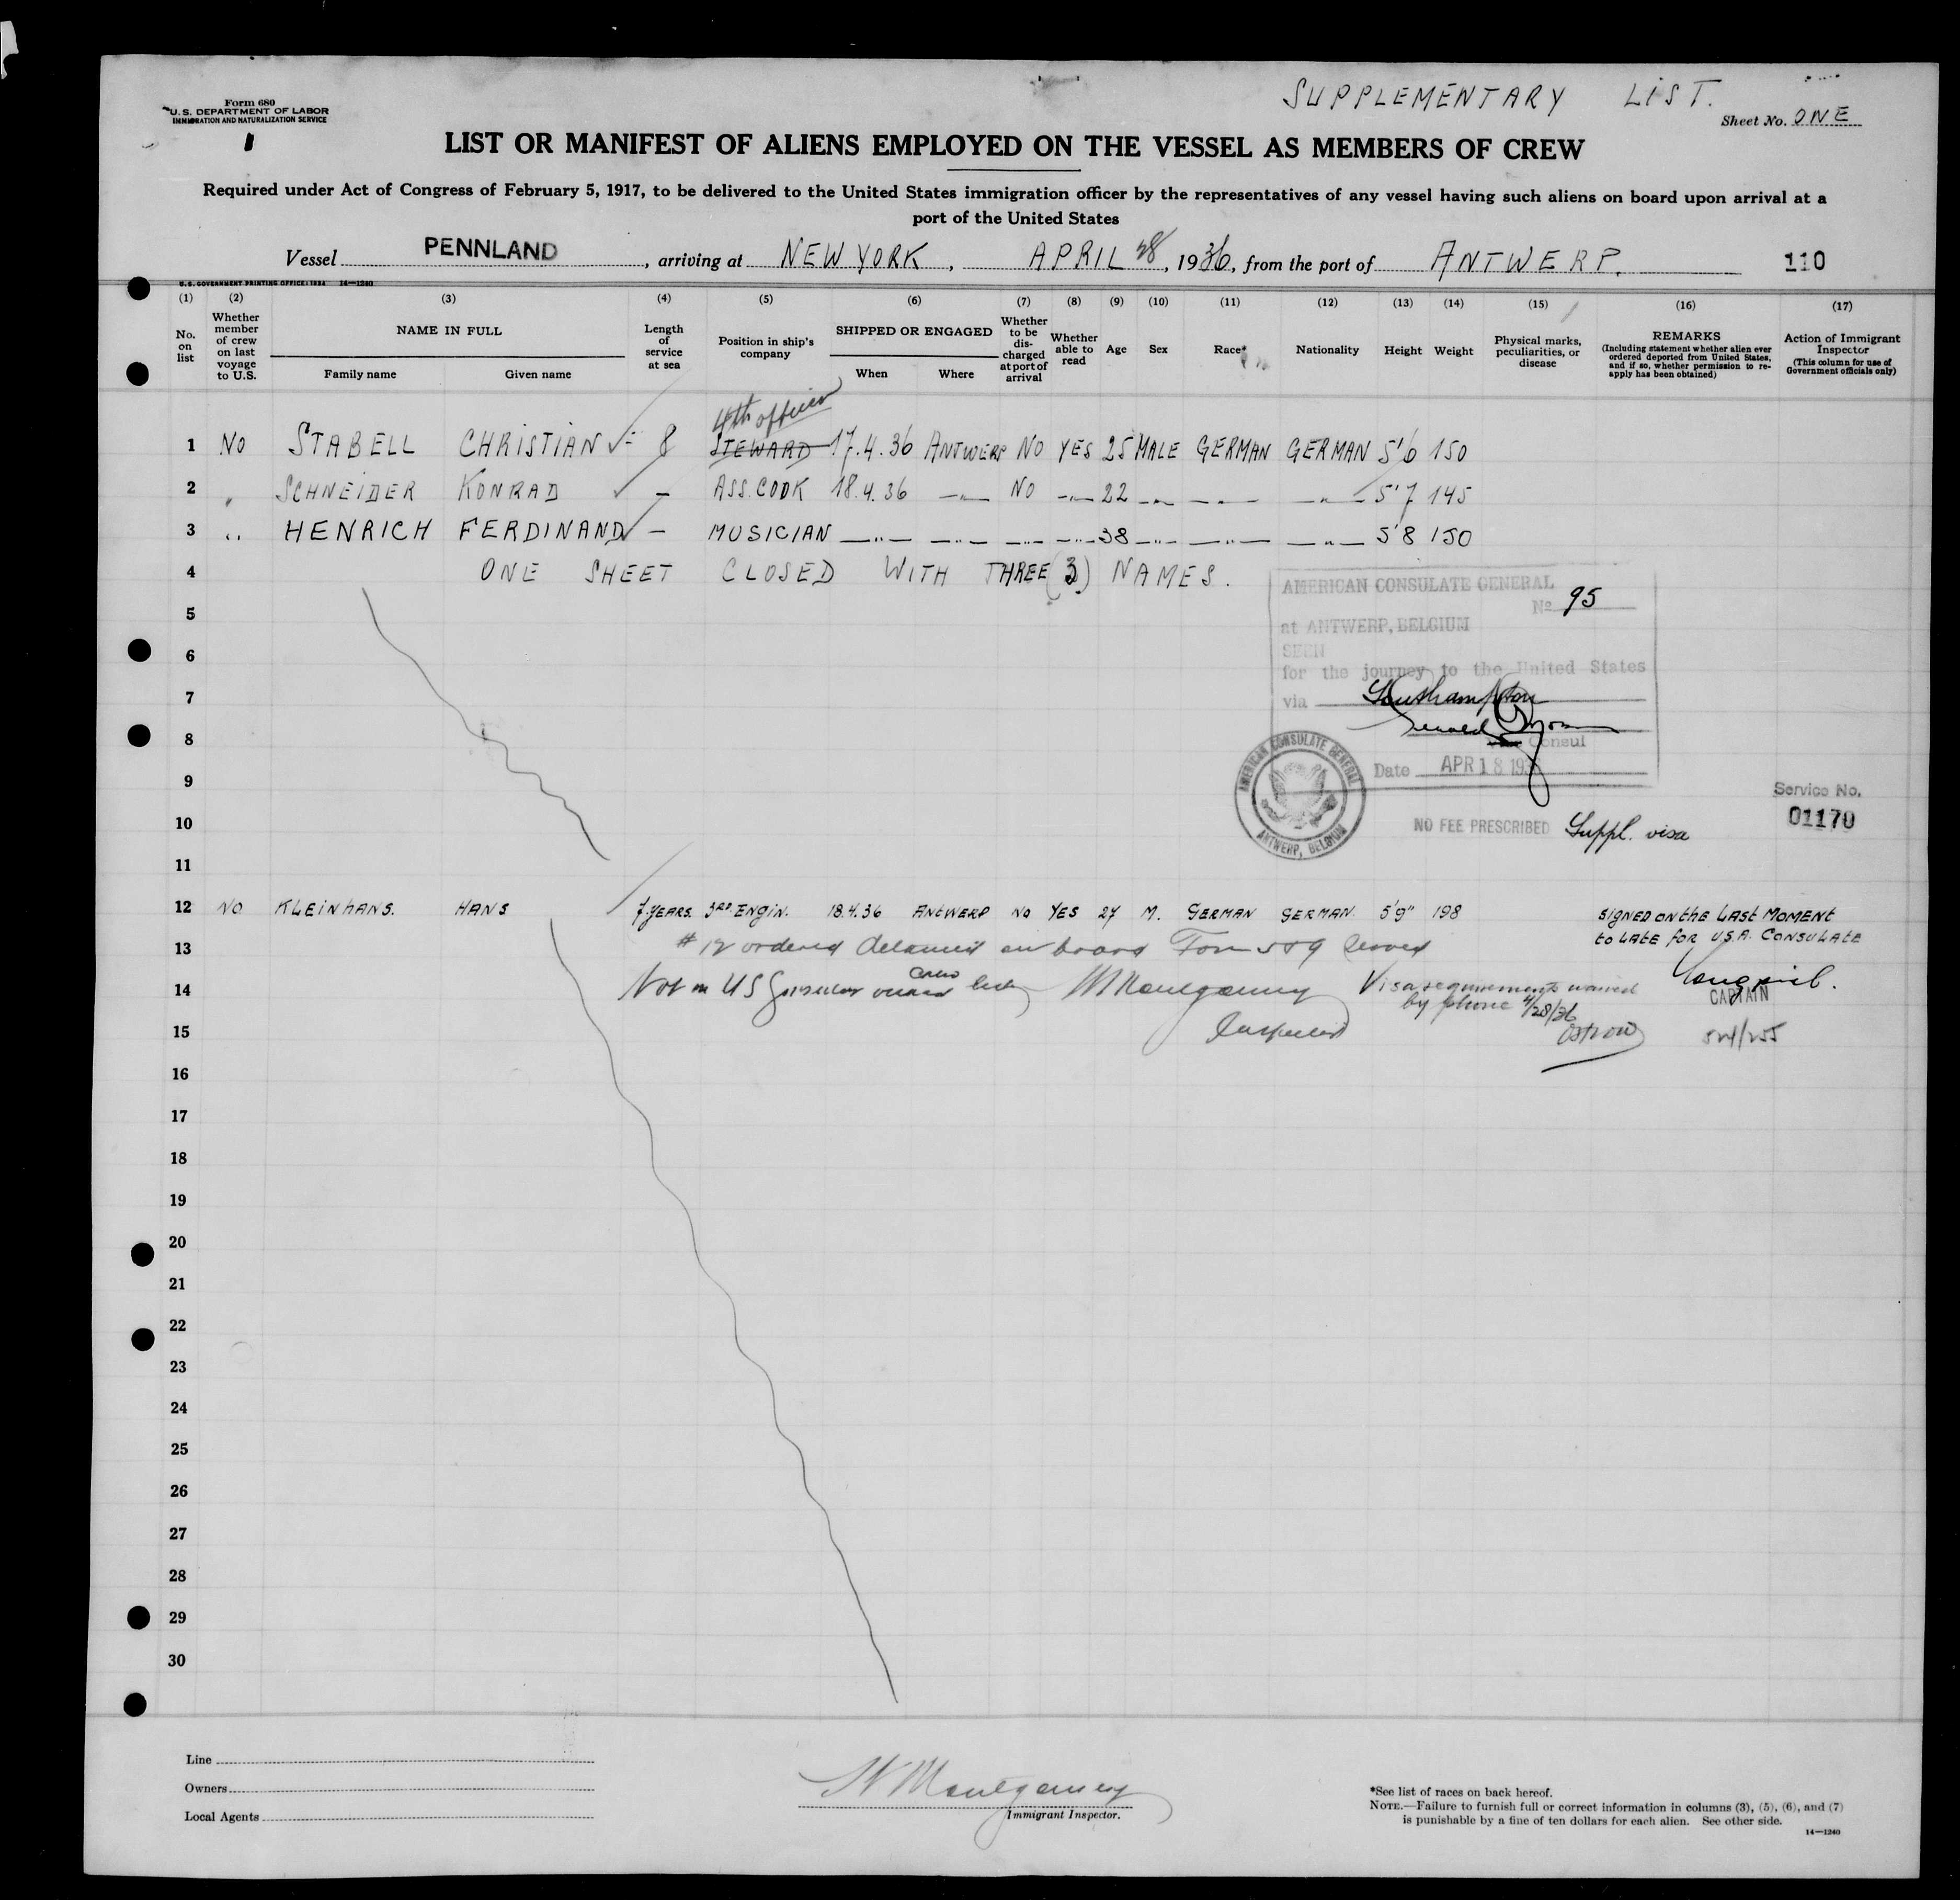 SUPPLEMENTARY LIST.
Form 680
U. S. DEPARTMENT OF LABOR
IMMIGRATION AND NATURALIZATION SERVICE
Sheet No. ONE
LIST OR MANIFEST OF ALIENS EMPLOYED ON THE VESSEL AS MEMBERS OF CREW
Required under Act of Congress of February 5, 1917, to be delivered to the United States immigration officer by the representatives of any vessel having such aliens on board upon arrival at a
port of the United States
Vessel PENNLAND, arriving at NEW YORK, APRIL 28, 1936, from the port of ANTWERP. 110
U. S. GOVERNMENT PRINTING OFFICE: 1934 14—1240
(1) (2) (3) (4) (5) (6) (7) (8) (9) (10) (11) (12) (13) (14) (15) (16) (17)
No. on list
Whether member of crew on last voyage to U.S.
NAME IN FULL
Family name Given name
Length of service at sea
Position in ship's company
SHIPPED OR ENGAGED
When Where
Whether to be discharged at port of arrival
Whether able to read
Age
Sex
Race*
Nationality
Height
Weight
Physical marks, peculiarities, or disease
REMARKS
(Including statement whether alien ever ordered deported from United States, and if so, whether permission to reapply has been obtained)
Action of Immigrant Inspector
(This column for use of Government officials only)
4th officer
1 NO STABELL CHRISTIAN - 8 STEWARD 17.4.36 ANTWERP NO YES 25 MALE GERMAN GERMAN 5'6 150
2 " SCHNEIDER KONRAD - ASS. COOK 18.4.36 —"— NO —"— 22 —"— —"— —"— 5'7 145
3 " HENRICH FERDINAND - MUSICIAN —"— —"— —"— —"— 38 —"— —"— —"— 5'8 150
4 ONE SHEET CLOSED WITH THREE (3) NAMES.
AMERICAN CONSULATE GENERAL
No 95
at ANTWERP, BELGIUM
SEEN
for the journey to the United States
via Southampton
Consul
Date APR 18 1936
AMERICAN CONSULATE GENERAL
ANTWERP, BELGIUM
NO FEE PRESCRIBED Suppl. visa
Service No.
01170
5
6
7
8
9
10
11
12 NO KLEINHANS. HANS 7 YEARS. 3RD. ENGIN. 18.4.36 ANTWERP NO YES 27 M. GERMAN GERMAN. 5'9" 198 SIGNED ON the LAST MOMENT
to LATE FOR U.S.A. CONSULATE
13 # 12 ordered detained on board Form 509 served
14 Not on US Consular visaed crew list M Montgomery
Inspector
Visa requirements waived
by phone 4/28/36
Ostrow
CAPTAIN
15
524/255
16
17
18
19
20
21
22
23
24
25
26
27
28
29
30
Line
Owners
Local Agents
Montgomery
Immigrant Inspector.
*See list of races on back hereof.
NOTE.—Failure to furnish full or correct information in columns (3), (5), (6), and (7)
is punishable by a fine of ten dollars for each alien. See other side.
14—1240